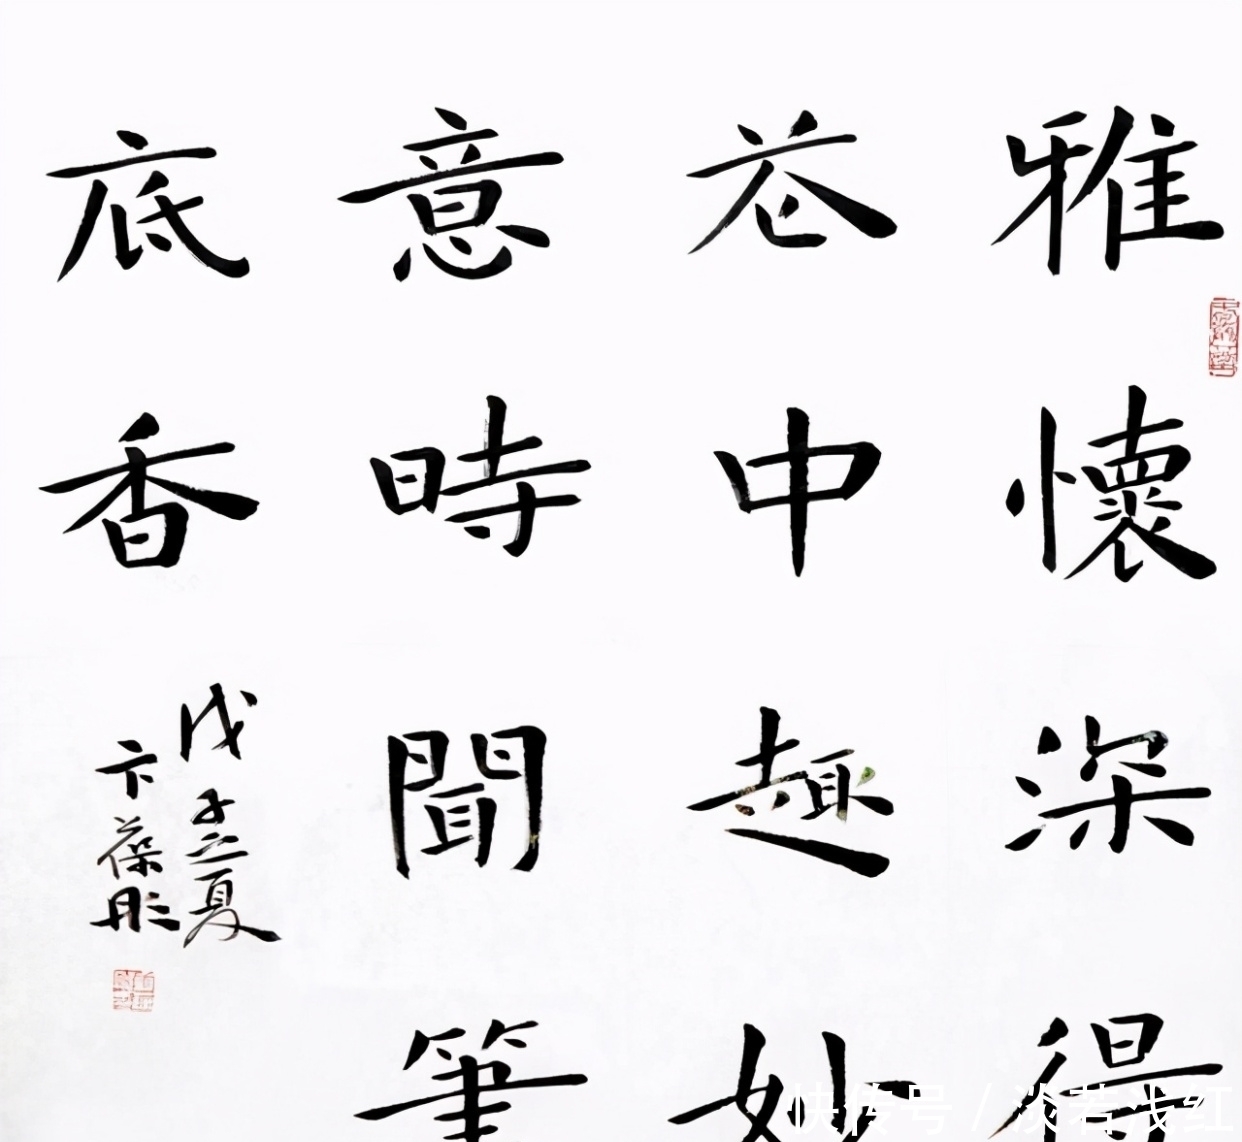 雅懷深得
花中趣妙
意時聞筆
底香
戊子夏
卞葆彤
快传号 / 淡若浅红